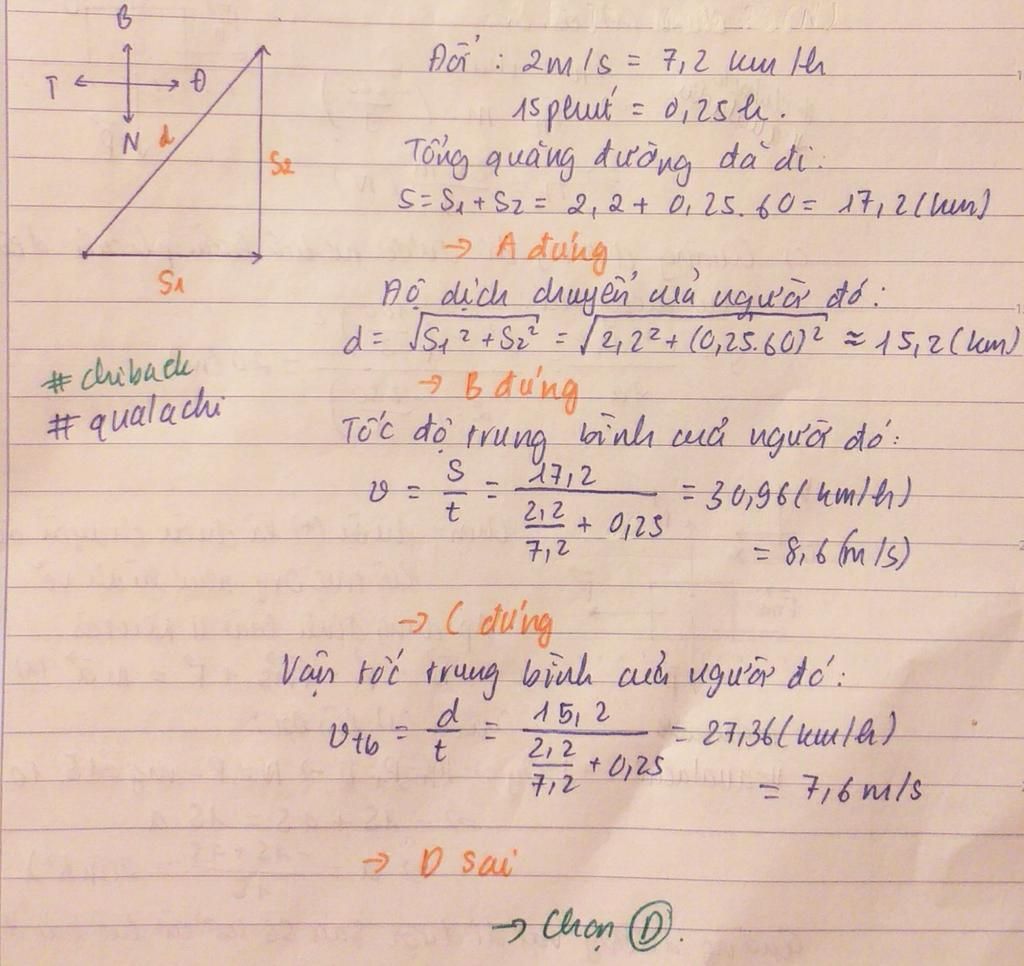 B
T Đ
N
d
S2
S1
Đổi : 2m/s = 7,2 km/h
15 phút = 0,25h.
Tổng quãng đường đã đi:
S = S1 + S2 = 2,2 + 0,25.60 = 17,2 (km)
→ A đúng
Độ dịch chuyển của người đó:
d = √(S1² + S2²) = √(2,2² + (0,25.60)²) ≈ 15,2 (km)
#chiback
#qualachi
→ B đúng
Tốc độ trung bình của người đó:
v = S/t = 17,2/(2,2/7,2 + 0,25) = 30,96 (km/h)
= 8,6 (m/s)
→ C đúng
Vận tốc trung bình của người đó:
vtb = d/t = 15,2/(2,2/7,2 + 0,25) = 27,36 (km/h)
= 7,6 m/s
→ D sai
→ Chọn D.